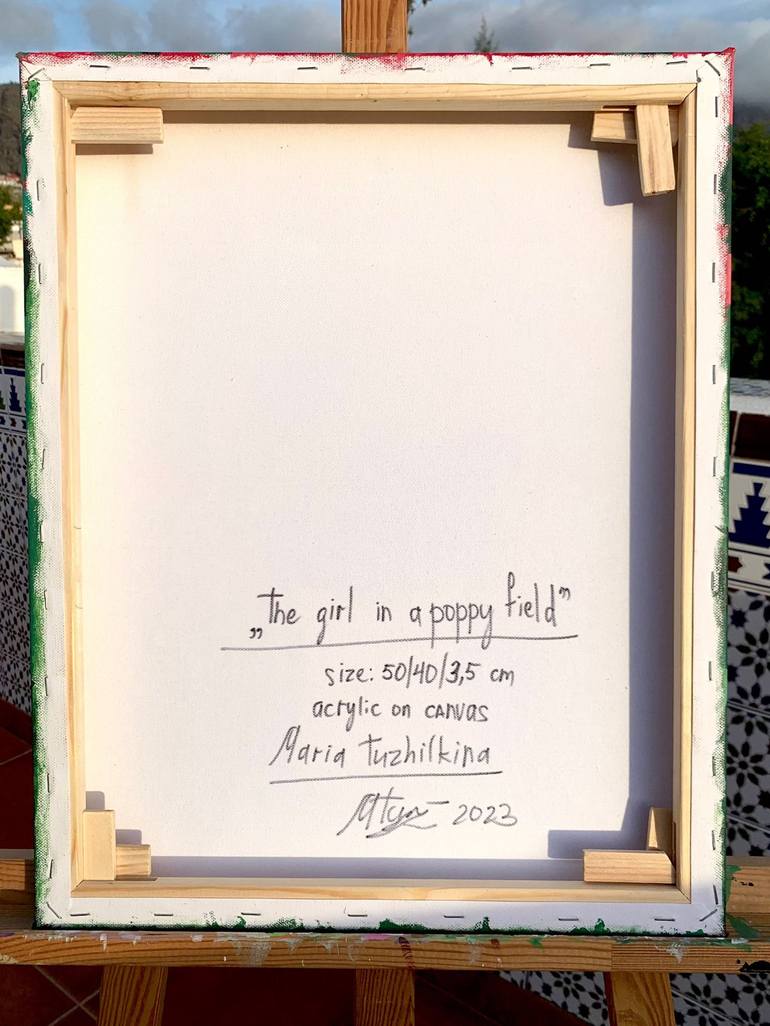 „the girl in a poppy field”
size: 50/40/3,5 cm
acrylic on canvas
Maria Tuzhilkina
2023